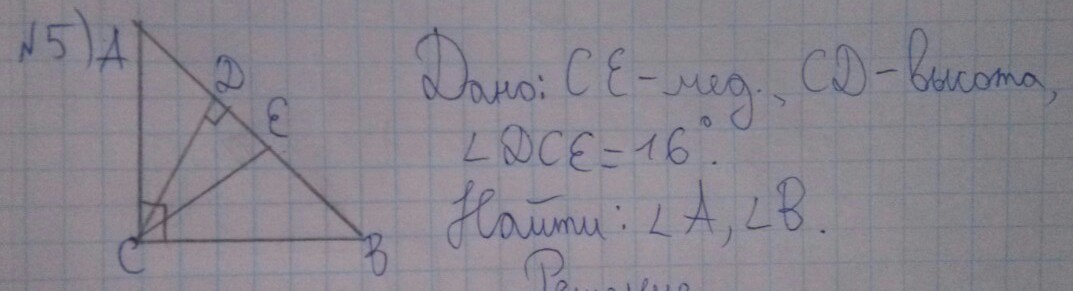 №5) A
D
E
C
B
Дано: CE-мед., CD-высота,
∠DCE=16°.
Найти: ∠A, ∠B.